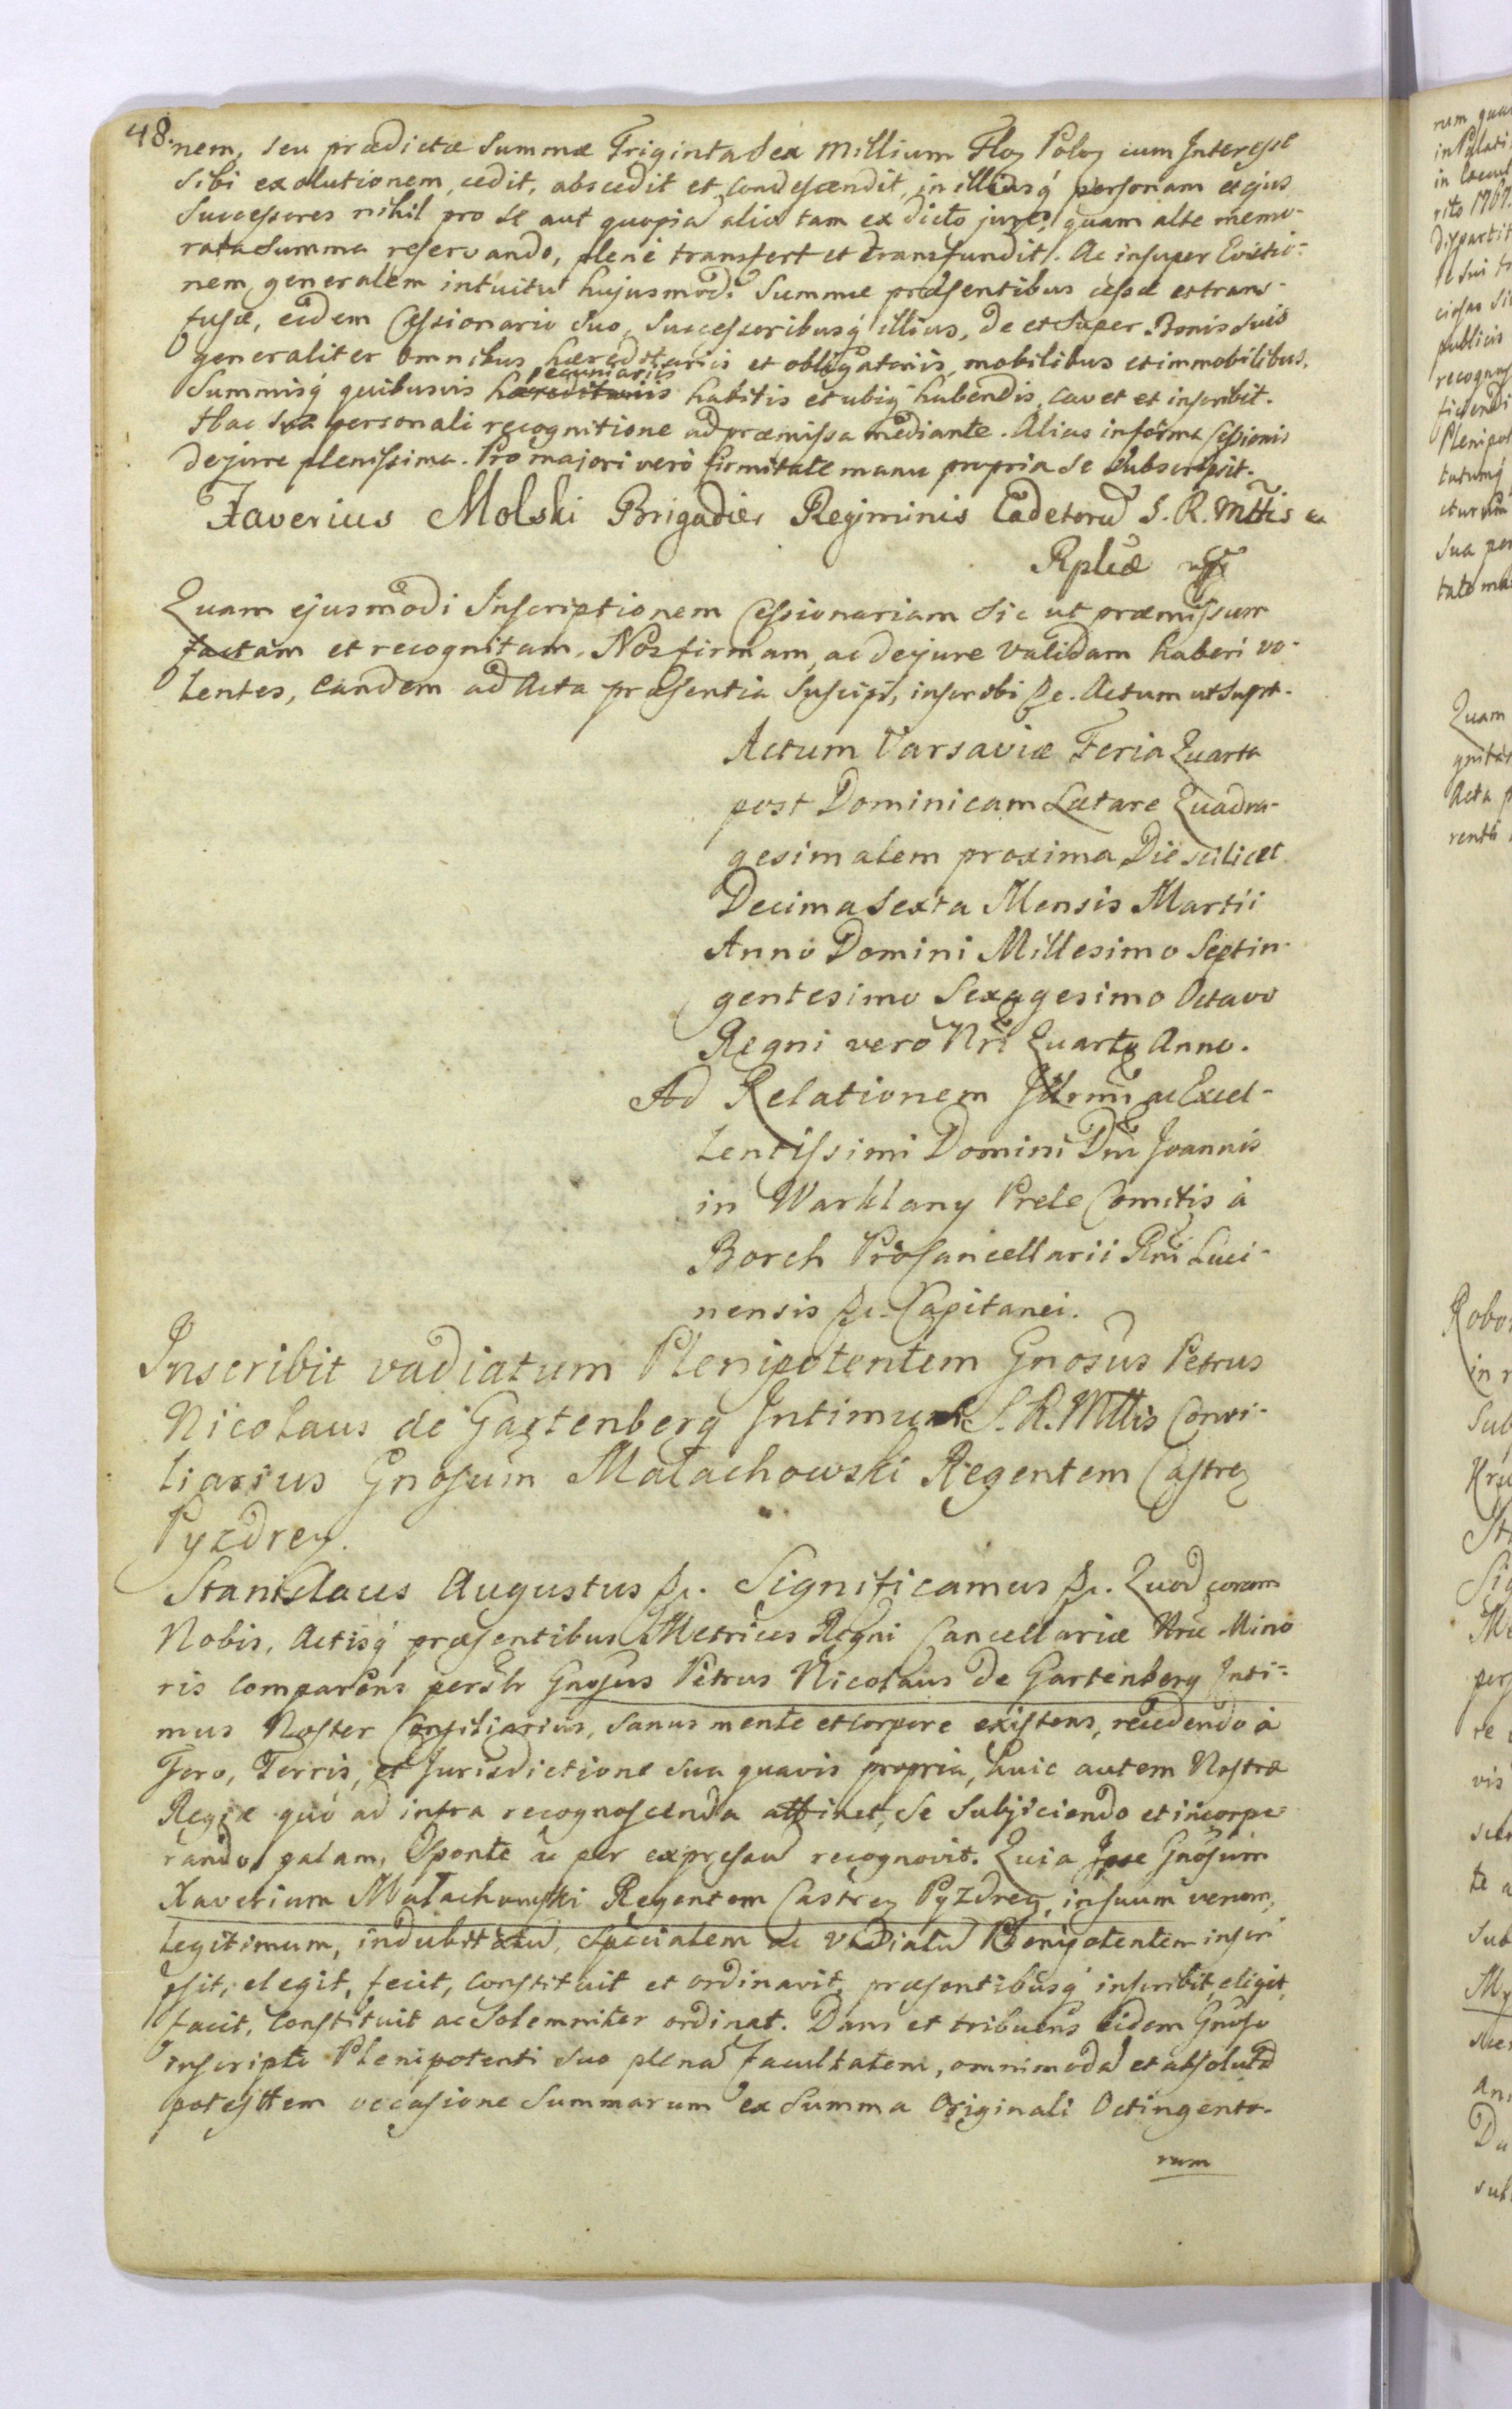 48.
nem, seu prædictæ Summæ Triginta Sex Millium Floꝝ Poloꝝ cum Interesse
sibi exolutionem, cedit, abscedit et condescendit, in illiusq́ personam et ejus
Successores nihil pro se aut quopiã alio tam ex dicto jure, quam alte memo-
rata Summa reservando, plenè transfert et transfundit. Ac insuper Evictio-
nem generalem intuitu hujusmodi Summæ præsentibus cessæ et trans-
fusæ, eidem Cessionario suo, Successoribusq́ illius, de et super Bonis suis
generaliter omnibus hæreditariis et obligatoriis, mobilibus et immobilibus,
pecuniariis
Summisq́ quibusvis hæreditariis habitis et ubiq́ habendis, cavet et inscribit.
Hac sua personali recognitione ad præmissa mediante. Alias in forma Cessionis
de jure plenissima. Pro majori verò firmitate manu propria se subscripsit.
Xaverius Molski Brigadier Regiminis Cadetorũ S. R. Mttis
Rplcæ
Quam ejusmodi Inscriptionem Cessionariam sic ut præmissum
factam et recognitam, Nos firmam, ac de jure validam haberi vo-
lentes, eandem ad Acta præsentia suscipi, inscribi &c. Actum ut supr.
Actum Varsaviæ Feria Quarta
post Dominicam Lætare Quadra-
gesimalem proxima Die scilicet
Decima Sexta Mensis Martii
Anno Domini Millesimo Septin-
gentesimo Sexagesimo Octavo
Regni verò Nri Quarto Anno.
Ad Relationem Illrmi ac Excel-
lentissimi Domini Dni Joannis
in Warklany Prele Comitis à
Borch ProCancellarii Rni Luci-
nensis &c. Capitanei.
Inscribit vadiatum Plenipotentem Gnosus Petrus
Nicolaus de Gartenberg Intimus S. R. Mttis Consi-
liarius Gnosum Małachowski Regentem Castreꝝ
Pyzdreꝝ.
Stanislaus Augustus &c. Significamus &c. Quod coram
Nobis, Actisq́ præsentibus Metrices Regni Cancellariæ Nræ Mino
ris comparens persłr Gnosus Petrus Nicolaus de Gartenberg Inti-
mus Noster Consiliarius, sanus mente et corpore existens, recedendo à
Foro, Terris, et Jurisdictione sua quavis propria, huic autem Nostræ
Regiæ quò ad infra recognoscenda attinet, se subjiciendo et incorpo-
rando, palam, sponte ac per expressũ recognovit. Quia Ipse Gnosum
Xaverium Małachowski Regentem Castreꝝ Pyzdreꝝ, in suum verum,
legitimum, indubitatũ, specialem ac vadiatũ Plenipotentem inscri
psit, elegit, fecit, constituit et ordinavit, præsentibusq́ inscribit, eligit,
facit, constituit ac solemniter ordinat. Dans et tribuens eidem Gnoso
inscripto Plenipotenti suo plenã facultatem, omnimodã et absolutã
potesttem occasione Summarum ex Summa Originali Octingento-
rum